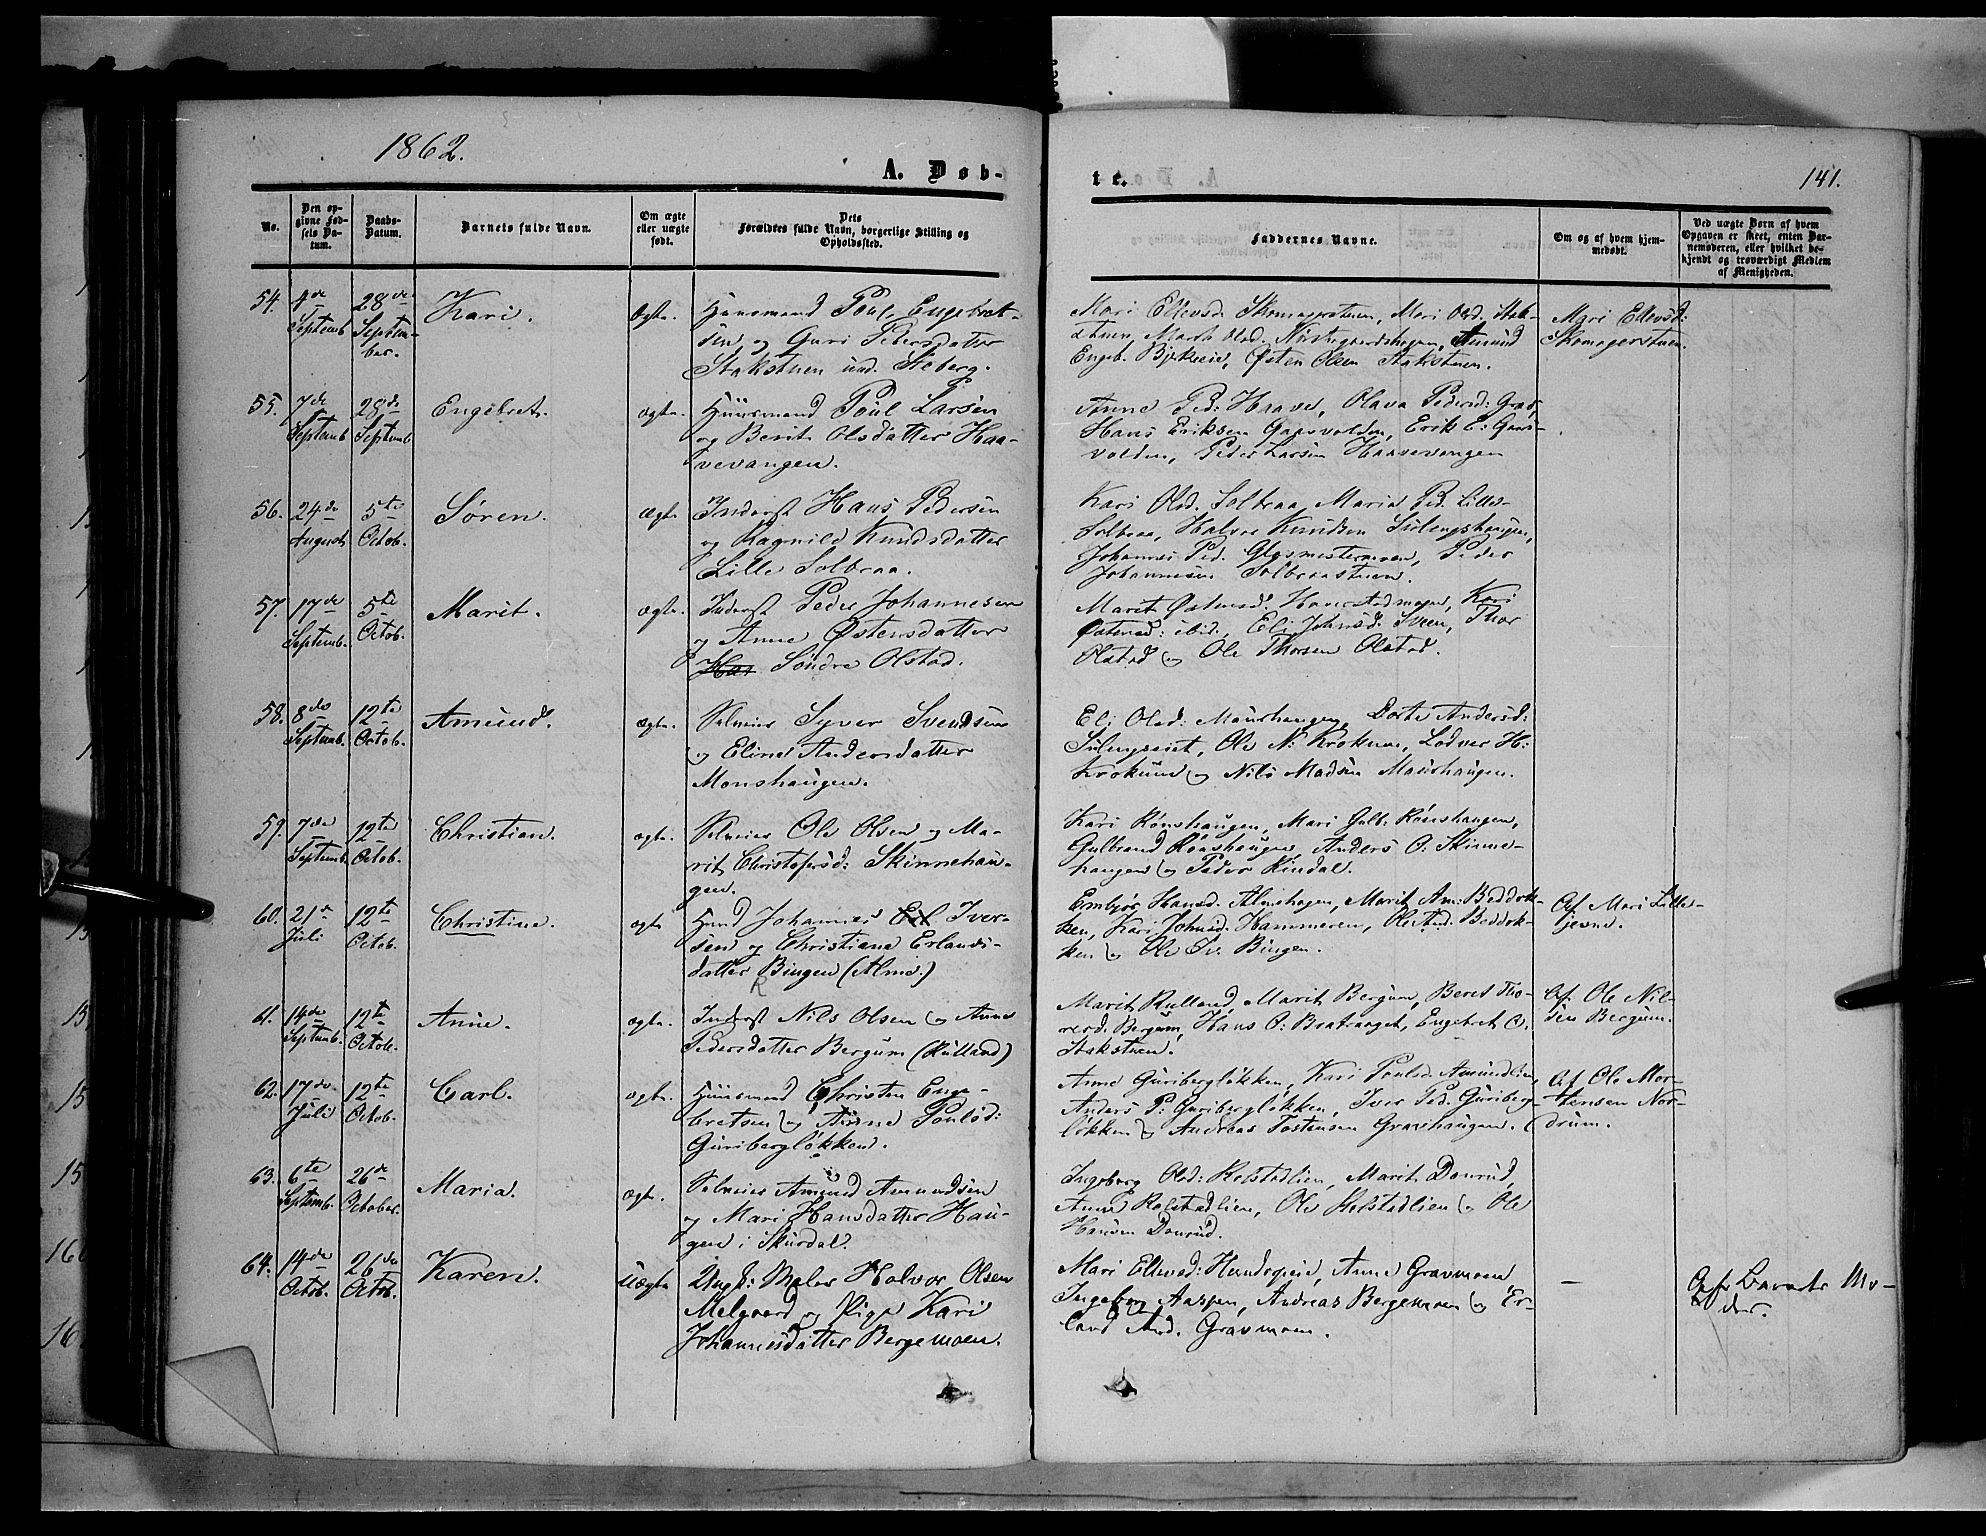 1862.
A. Døb-
te.
141.
No.
Den op-
givne Fød-
sels Da-
tum.
Daabs-
Datum.
Barnets fulde Navn.
Om ægte
eller uægte
født.
Dets
Forældres fulde Navn, borgerlige Stilling og
Opholdssted.
Faddernes Navne.
Om og af hvem hjem-
medøbt.
Ved uægte Børn af hvem
Opgaven er skeet, enten Bar-
nemoderen, eller hvilket be-
kjendt og troværdigt Medlem
af Menigheden.
54. 4de Septemb. 28de Septem-
ber.
Kari.
Ægte.
Huusmand Poul Engebret-
sen og Guri Pedersdatter
Stakstuen und. Steberg.
Mari Ellevsd. Skomagerstuen, Mari Olsd. Stak-
stuen, Marit Olsd. Nordsgaardshagen, Amund
Engeb. Bjekreie, Østen Olsen Stakstuen.
Mari Ellevsd:
Skomagerstuen.
55. 7de Septemb. 28de Septemb.
Engebret.
ægte.
Huusmand Poul Larsen
og Berit Olsdatter Haa-
vevangen.
Anne Ped: Haave, Olava Pedersd: Grav,
Hans Eriksen Gaasvolden, Erik E. Gaas-
volden, Peder Larsen Haavevangen
56. 24de August 5te Octob.
Søren.
Ægte
Inderst Hans Pedersen
og Ragnild Knudsdatter
Lille Solbraa.
Kari Olsd. Solbraa, Maria Ped. Lille-
Solbraa, Halvor Knudsen Sulengshaugen,
Johannes Ped. Glasmestermoen, Peder
Johannesen Solbraastuen.
57. 17de Septemb. 5te Octob.
Marit.
ægte.
Inderst Peder Johannesen
og Anne Østensdatter
Søndre Olstad.
Marit Østensd. Haverstadmoen, Kari
Østensd: ibid., Eli Johnsd: Sveen, Thor
Olstad og Ole Thorsen Olstad.
58. 8de Septemb. 12te Octob.
Amund.
ægte.
Selveier Syver Svendsen
og Eline Andersdatter
Monshaugen.
Eli Olsd: Maurhaugen, Dorte Andersd:
Sulengseiet, Ole N: Krokene, Lodver H:
Krokene og Nils Madsen Maurhaugen.
59. 7de Septemb. 12te Octob.
Christian.
ægte.
Selveier Ole Olsen og Ma-
rit Christofersd: Skinnehau-
gen.
Kari Rønshaugen, Mari Gulb. Rønshaugen,
Gulbrand Rønshaugen, Anders O: Skinne-
haugen og Peder Rindal.
60. 21de Juli 12te Octob.
Christine.
ægte
Huusmd Johannes Iver-
sen og Christiane Erlands-
datter Bingen (Alme.)
Embjør Hansd. Almehagen, Marit Am: Beddek-
ken, Kari Johnsd. Hammeren, Ole And. Beddek-
ken og Ole Iv. Bingen.
Af Mari Lille-
tjesne.
61. 14de Septemb. 12te Octob.
Anne.
ægte.
Inderst Nils Olsen og Anne
Pedersdatter Bergum (Rulland)
Marit Rulland, Marit Bergum, Beret Tho-
resd. Bergum, Hans O: Bratvaaget, Engebret O.
Stakstuen.
Af Ole Nil-
sen Bergum.
62. 17de Juli 12te Octob.
Carl.
ægte.
Huusmand Christen Enge-
bretsen og Anne Poulsd:
Guribergløkken.
Anne Guribergløkken, Kari Poulsd. Amundlien,
Anders P: Guribergløkken, Iver Ped. Guriberg-
løkken og Andreas Tostensen Gravhaugen.
Af Ole Mor-
tensen Nor-
drum.
63. 6te Septemb. 26de October.
Maria.
ægte.
Selveier Amund Amundsen
og Mari Hansdatter Hau-
gen i Skurdal.
Ingeborg Olsd: Kolstadlien, Marit Donrud,
Anne Kolstadlien, Ole Kolstadlien og Ole
Hansen Donrud.
64. 14de Octob. 26de Octob.
Karen.
Uægte
Ungk: Maler Halvor Olsen
Melgaard og Pige Kari
Johannesdatter Bergemoen.
Mari Ellevsd: Hundopeie, Anne Gravmoen
Ingeborg Aaspen, Andreas Bergemoen og Er-
land And. Gravmoen.
—
Af Barnets Mo-
der.